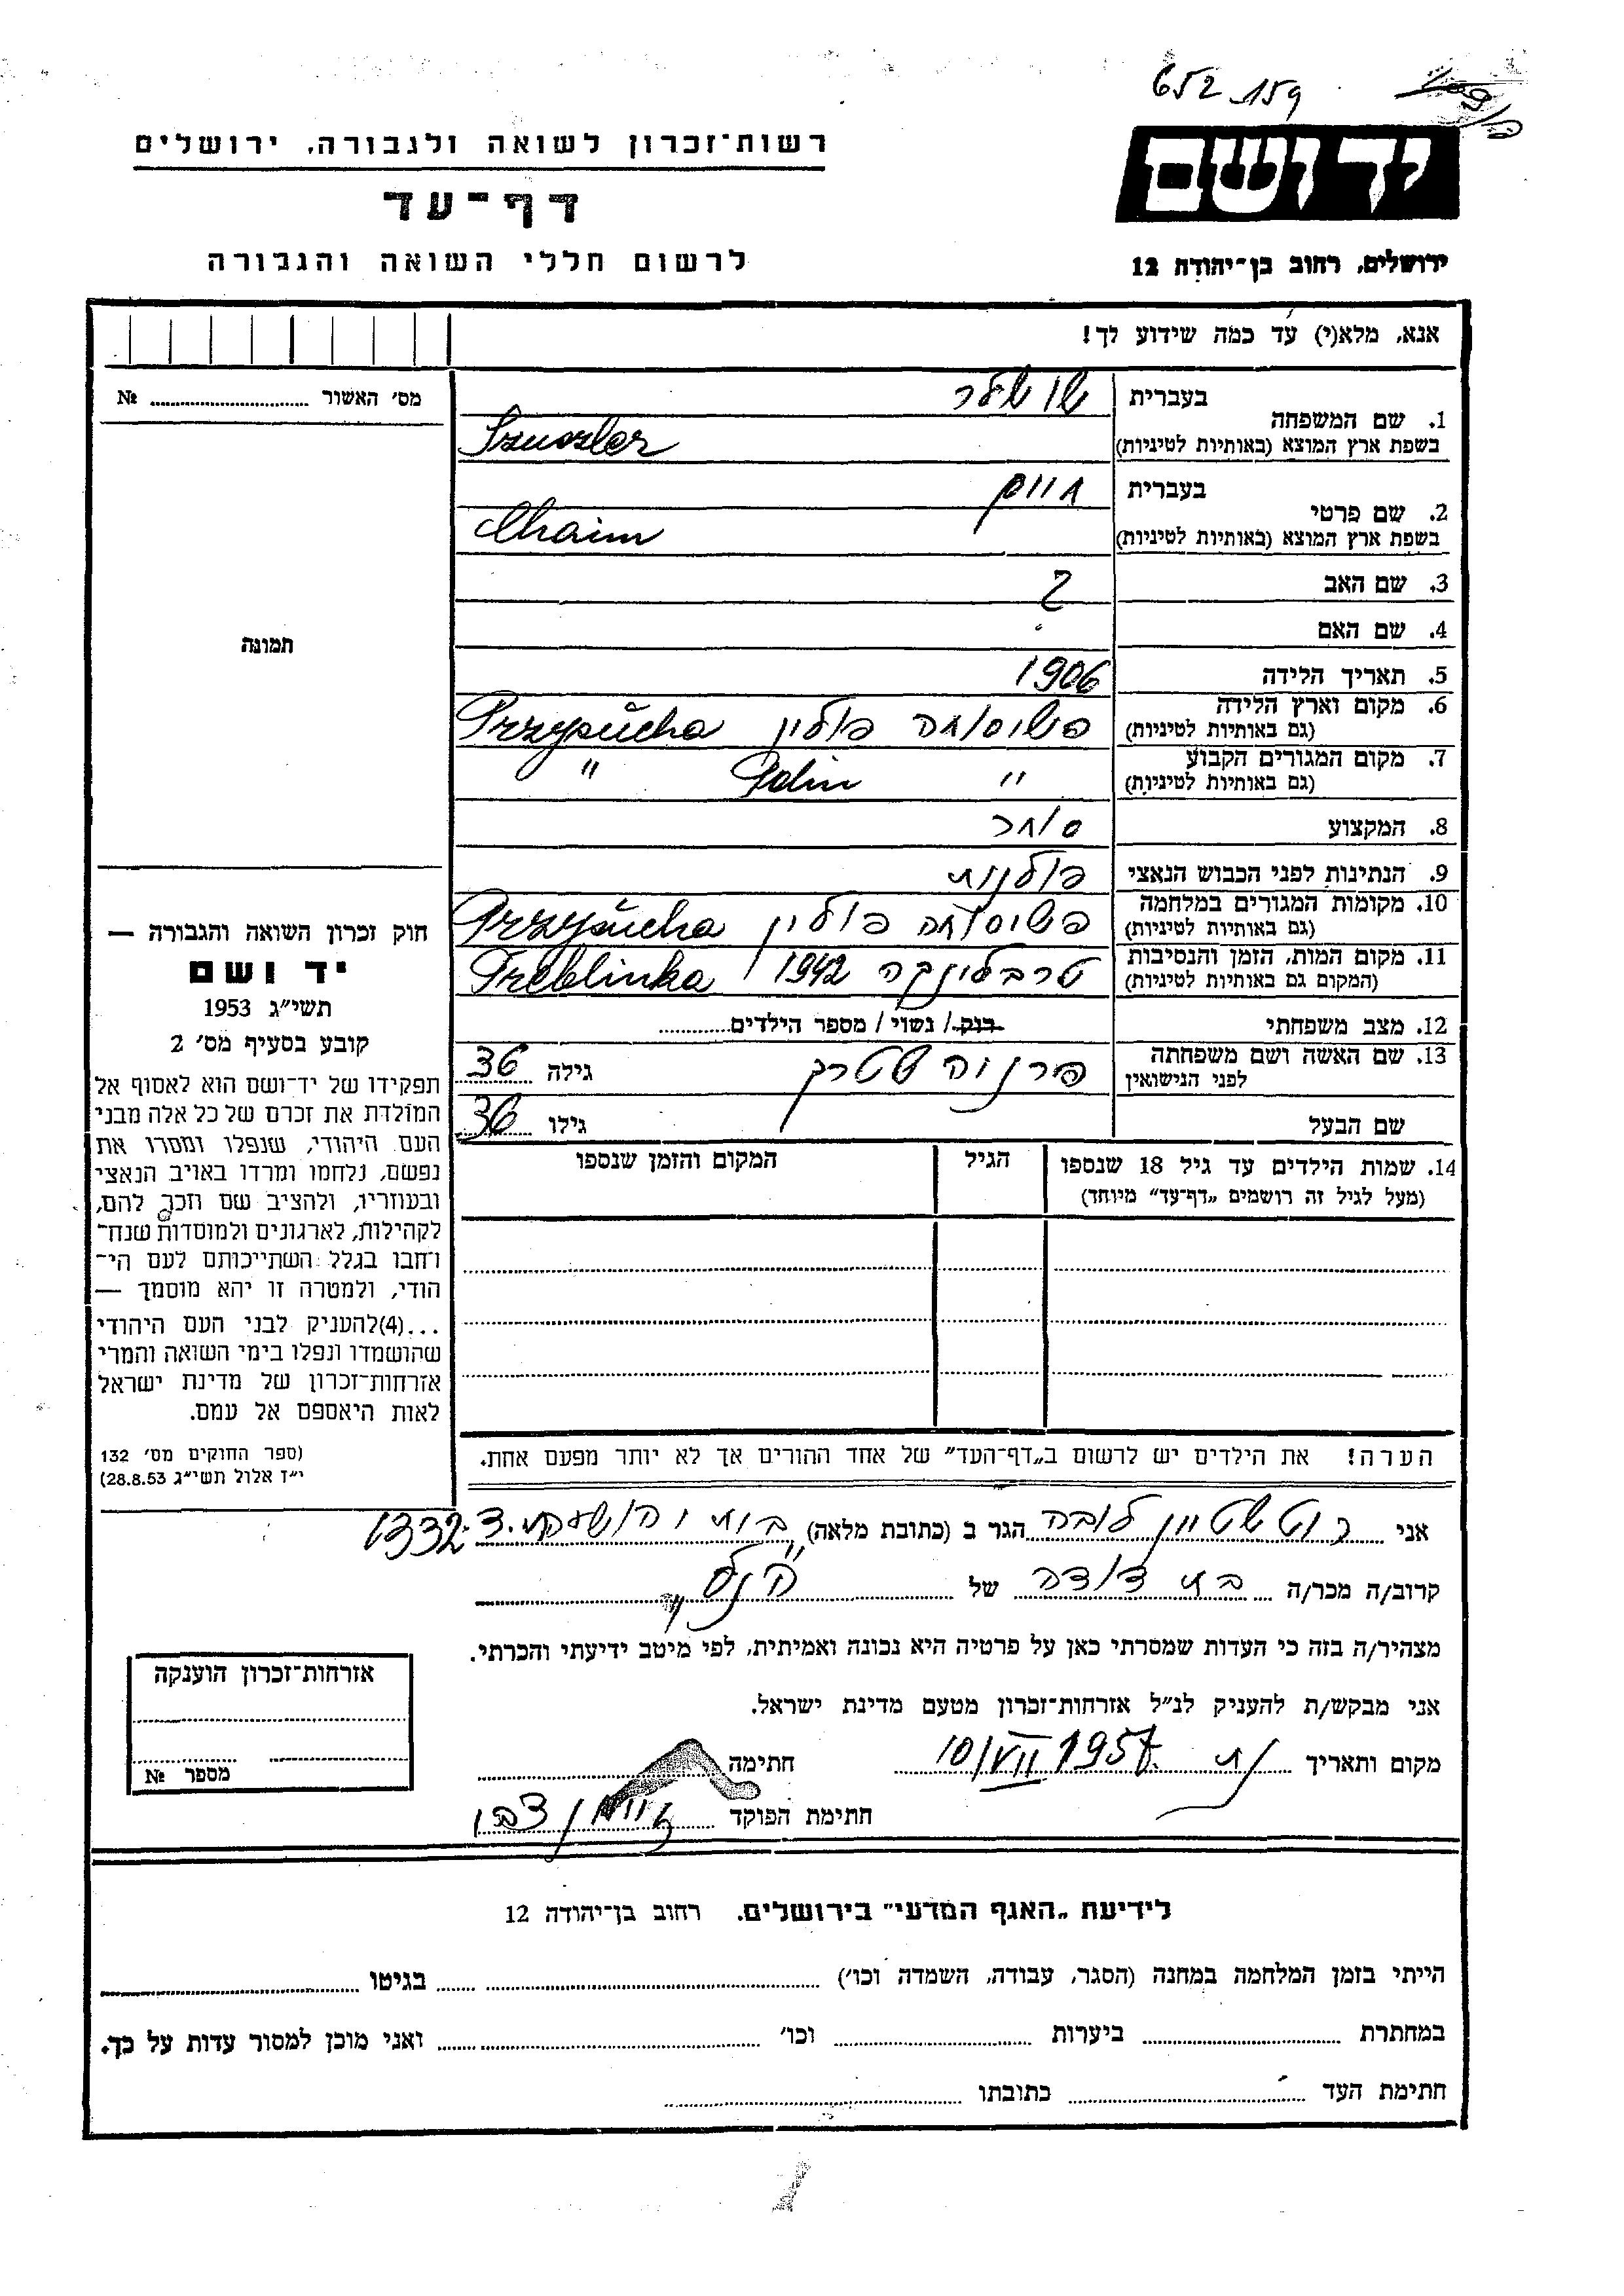 652_159
יד ושם
רשות־זכרון לשואה ולגבורה, ירושלים
דף־עד
לרשום חללי השואה והגבורה
ירושלים, רחוב בן־יהודה 12
אנא, מלא(י) עד כמה שידוע לך!
מס׳ האשור ............ №
1. שם המשפחה
בעברית שושלר
בשפת ארץ המוצא (באותיות לטיניות) Szuszler
2. שם פרטי
בעברית חיים
בשפת ארץ המוצא (באותיות לטיניות) Chaim
3. שם האב ?
4. שם האם
תמונה
5. תאריך הלידה 1906
6. מקום וארץ הלידה
(גם באותיות לטיניות) פשיסוחה פולין Przysucha
7. מקום המגורים הקבוע
(גם באותיות לטיניות) " Polin "
8. המקצוע סוחר
9. הנתינות לפני הכבוש הנאצי פולנית
10. מקומות המגורים במלחמה
(גם באותיות לטיניות) פשיסוחה פולין Przysucha
11. מקום המות, הזמן והנסיבות
(המקום גם באותיות לטיניות) טרבלינקה 1942 Treblinka
12. מצב משפחתי רוק / נשוי / מספר הילדים............
13. שם האשה ושם משפחתה
לפני הנישואין פרניה שטרק גילה 36
שם הבעל גילו 36
14. שמות הילדים עד גיל 18 שנספו
(מעל לגיל זה רושמים „דף־עד” מיוחד)
הגיל
המקום והזמן שנספו
חוק זכרון השואה והגבורה —
יד ושם
תשי״ג 1953
קובע בסעיף מס׳ 2
תפקידו של יד־ושם הוא לאסוף אל
המולדת את זכרם של כל אלה מבני
העם היהודי, שנפלו ומסרו את
נפשם, נלחמו ומרדו באויב הנאצי
ובעוזריו, ולהציב שם וזכר להם,
לקהילות, לארגונים ולמוסדות שנח־
רחבו בגלל השתייכותם לעם הי־
הודי, ולמטרה זו יהא מוסמך —
...(4)להעניק לבני העם היהודי
שהושמדו ונפלו בימי השואה והמרי
אזרחות־זכרון של מדינת ישראל
לאות היאספם אל עמם.
(ספר החוקים מס׳ 132
י״ז אלול תשי״ג 28.8.53)
הערה! את הילדים יש לרשום ב„דף־העד” של אחד ההורים אך לא יותר מפעם אחת.
אני רוטשטיין לובה הגר ב (כתובת מלאה) ד.1332
קרוב/ה מכר/ה בת דודה של הנ"ל
מצהיר/ה בזה כי העדות שמסרתי כאן על פרטיה היא נכונה ואמיתית, לפי מיטב ידיעתי והכרתי.
אני מבקש/ת להעניק לנ״ל אזרחות־זכרון מטעם מדינת ישראל.
מקום ותאריך 10/VII 1957 חתימה
חתימת הפוקד
אזרחות־זכרון הוענקה
מספר №
לידיעת „האגף המדעי” בירושלים, רחוב בן־יהודה 12
הייתי בזמן המלחמה במחנה (הסגר, עבודה, השמדה וכו׳) ............ בגיטו ............
במחתרת ............ ביערות ............ וכו׳ ............ ואני מוכן למסור עדות על כך.
חתימת העד ............ כתובתו ............